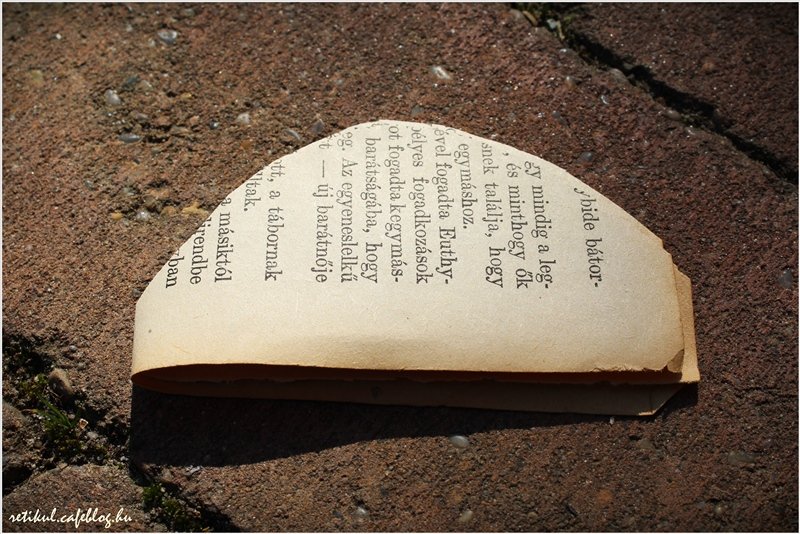 ybide bátor-
gy mindig a leg-
, és minthogy ők
snek találja, hogy
egymáshoz.
ével fogadta Euthy-
pélyes fogadkozások
ot fogadta kegymás-
barátságába, hogy
eg. Az egyeneslelkű
t — új barátnője
tt, a tábornak
ltak.
a másiktól
jrendbe
ban
retikul.cafeblog.hu